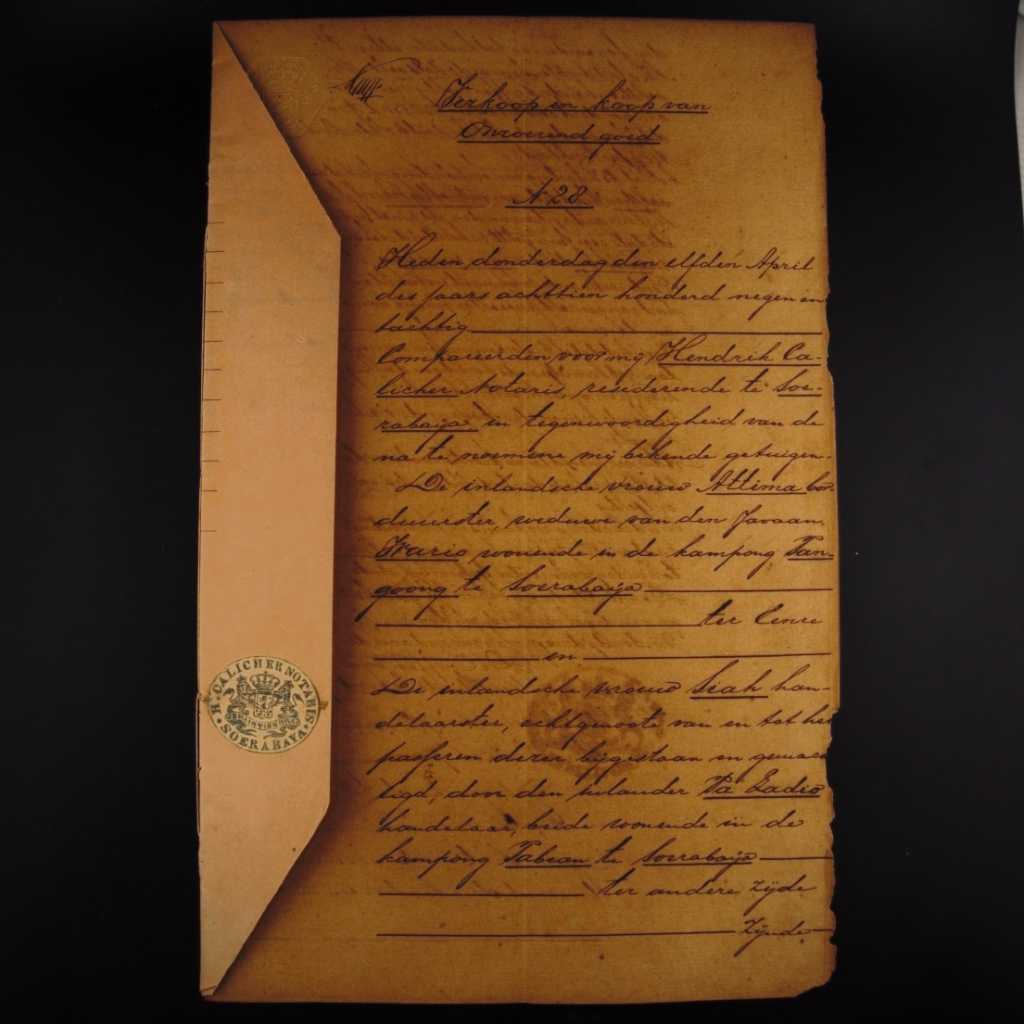 Verkoop en koop van
Onroerend goed
N 28.
Heden, donderdag den elfden April
des jaars achttien honderd negen en
tachtig
Compareerden voor mij Hendrik Ca-
licher Notaris, residerende te Soe-
rabaija, in tegenwoordigheid van de
na te noemene, mij bekende getuigen.
De inlandsche vrouw Attima bor-
duurster, weduwe van den Javaan
Wario wonende in de kampong
te Soerabaija
ter Eenre
en
De inlandsche vrouw Siah han-
delaarster, echtgenoote van en tot het
passeren dezer bijgestaan en gemach
tigd, door den inlander Pa
handelaar, beide wonende in de
kampong Pabean te Soerabaija
ter andere zijde
zijnde
H. CALICHER NOTARIS
SOERABAYA